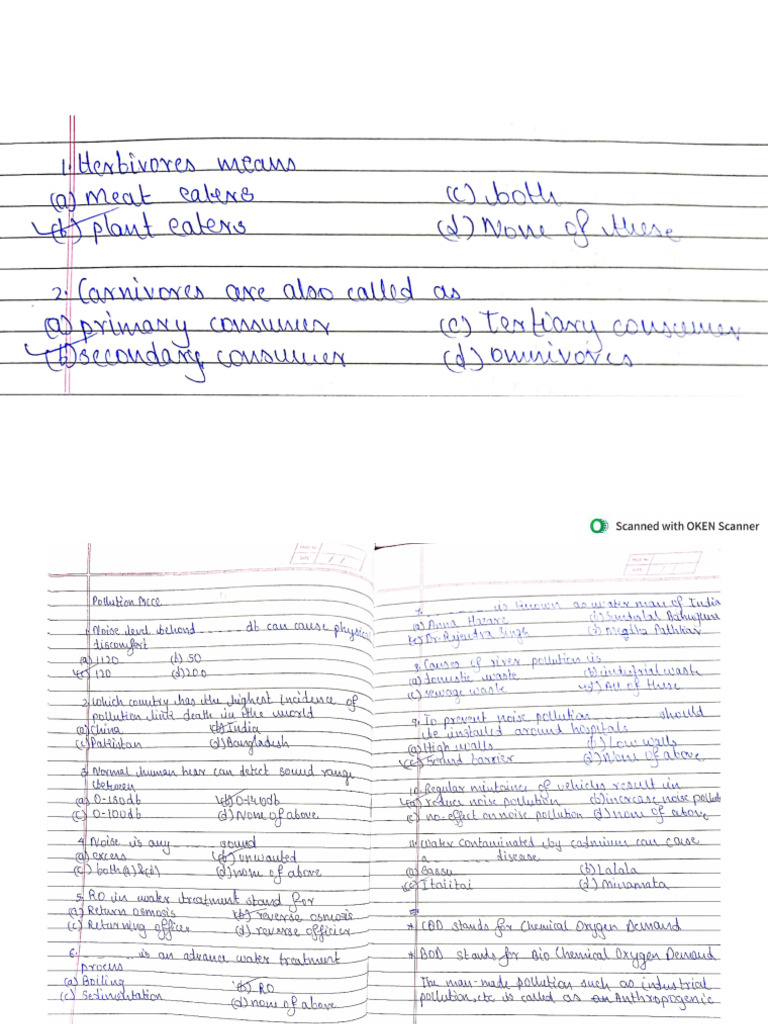 1. Herbivores means
(a) meat eaters (c) both
(b) plant eaters (d) None of these
2. Carnivores are also called as
(a) primary consumer (c) Tertiary consumer
(b) secondary consumer (d) omnivores
Scanned with OKEN Scanner
Pollution MCQ
1. Noise level behond ........ db can cause physical
discomfort
(a) 1120 (b) 50
(c) 120 (d) 200
2. Which country has the highest incidence of
pollution link death in the world
(a) China (b) India
(c) Pakistan (d) Bangladesh
3. Normal human hear can detect sound range
between
(a) 0-180db (b) 0-140db
(c) 0-100db (d) None of above
4. Noise is any ........ sound
(a) excess (b) unwanted
(c) both (d) none of above
5. RO in water treatment stand for
(a) Return osmosis (b) reverse osmosis
(c) Returning officer (d) reverse officier
6. ........ is an advance water treatment
process
(a) Boiling (b) RO
(c) Sedimentation (d) none of above
7. ........ is known as water man of India
(a) Anna Hazare (b) Sundarlal Bahuguna
(c) Dr. Rajendra Singh (d) Megha Pathkar
8. Causes of river pollution is
(a) domestic waste (b) industrial waste
(c) sewage waste (d) All of these
9. To prevent noise pollution ........ should
be installed around hospitals
(a) High walls (b) Low walls
(c) Sound barrier (d) None of above
10. Regular maintaince of vehicles result in
(a) reduce noise pollution (b) increase noise pollut
(c) no-effect on noise pollution (d) none of above
11. Water contaminated by cadmium can cause
a ........ disease
(a) (b) Lalala
(c) Itaiitai (d) Minamata
* COD stands for Chemical Oxygen Demand
* BOD stands for Bio Chemical Oxygen Demand
The man-made pollution such as industrial
pollution, etc is called as an Anthropogenic